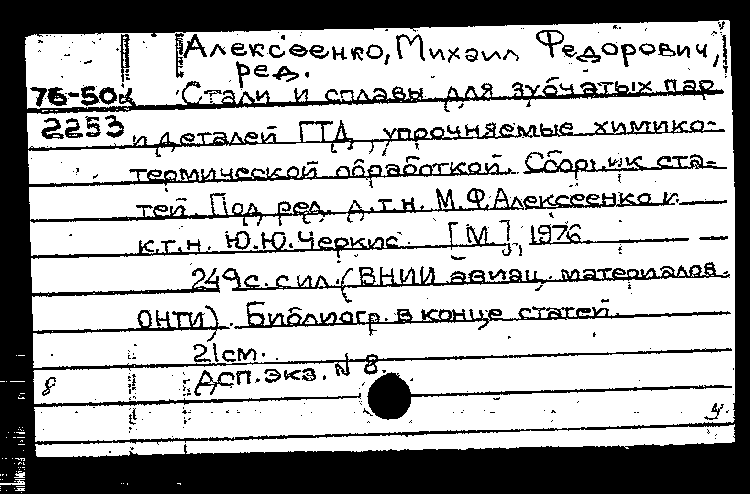 Алексеенко, Михаил Федорович,
ред.
76-50к Стали и сплавы для зубчатых пар
2253 и деталей ГТД, упрочняемые химико-
термической обработкой. Сборник ста-
тей. Под ред. д.т.н. М.Ф.Алексеенко и
к.т.н. Ю.Ю.Черкис. [М.], 1976.
249с. с ил. (ВНИИ авиац. материалов.
ОНТИ). Библиогр. в конце статей.
21см.
8 ДСП. экз. N 8.